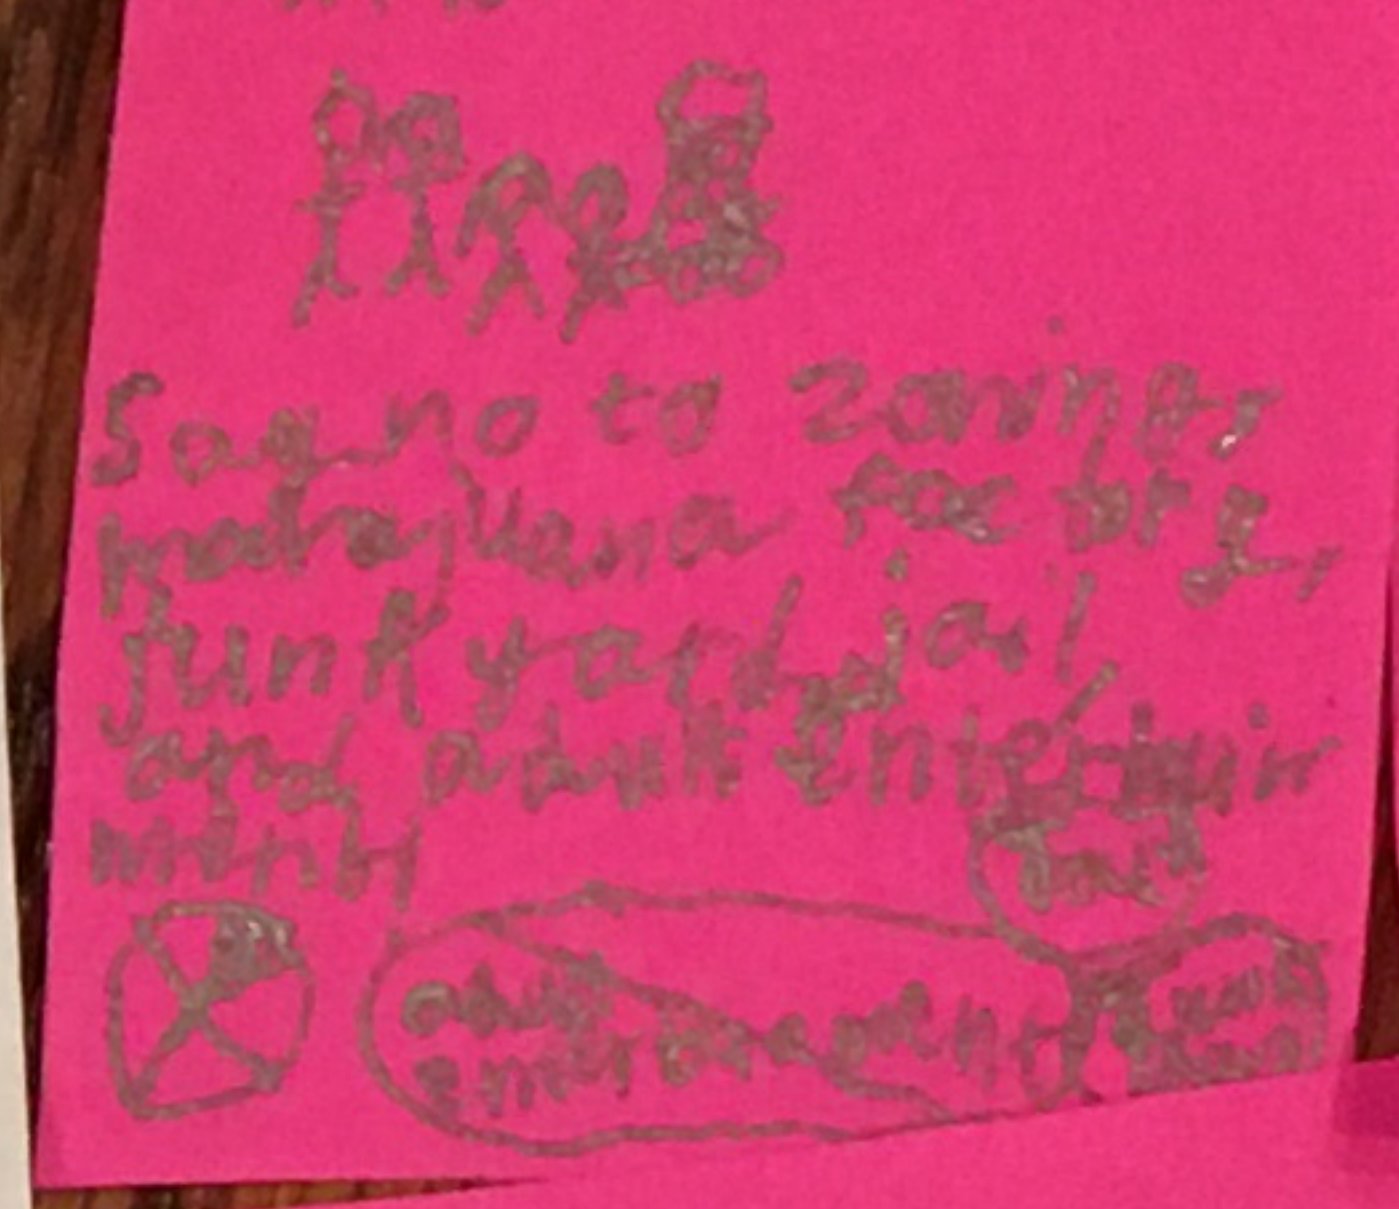 Say no to zoning,
marajuana factory,
junk yard, jail,
and adult entertain
ment
adult
junk